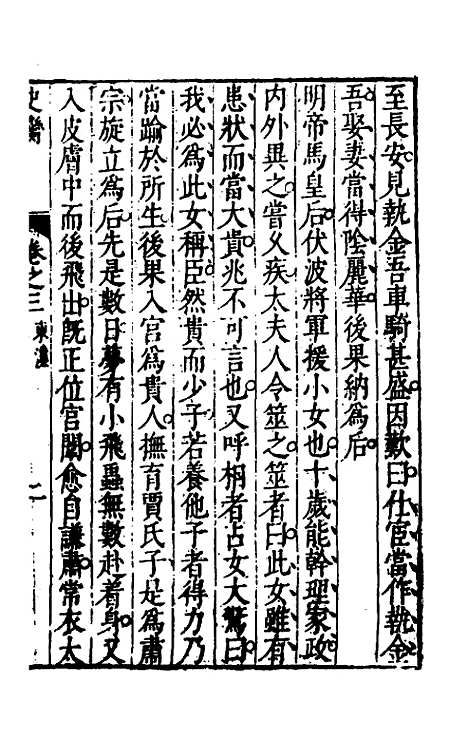 至長安見執金吾車騎甚盛因歎曰仕宦當作執金
吾娶妻當得陰麗華後果納為后
明帝馬皇后伏波將軍援小女也十歲能幹理家政
內外異之嘗久疾太夫人令筮之筮者曰此女雖有
患狀而當大貴兆不可言也又呼相者占女大驚曰
我必為此女稱臣然貴而少子若養他子者得力乃
當踰於所生後果入宮為貴人撫有賈氏子是為肅
宗旋立為后先是數日夢有小飛蟲無數赴着身又
入皮膚中而後飛出旣正位宮闈愈自謙肅常衣太
史
卷之三 東漢